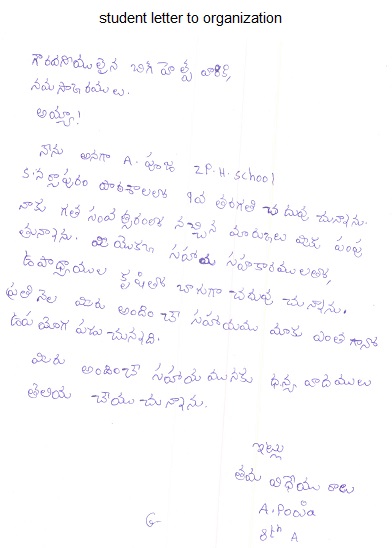 student letter to organization
గౌరవనీయులైన బిగ్ హెల్ప్ వారికి,
నమస్కారములు.
అయ్యా!
నేను అనగా A. పూజ Z.P.H. School
పాఠశాలలో చదువు చున్నాను.
నాకు గత సంవత్సరంలో నచ్చిన మీరు పంపు
తున్నారు. మీ యొక్క సహాయ సహకారములతో,
ఉపాధ్యాయుల కృషితో బాగుగా చదువు చున్నాను.
ప్రతి నెల మీరు అందించే సహాయము మాకు ఎంతగానో
ఉపయోగ పడుచున్నది.
మీరు అందించే సహాయమునకు ధన్యవాదములు
తెలియ చేయు చున్నాను.
ఇట్లు
తమ విధేయురాలు
A. Pooja
8th A